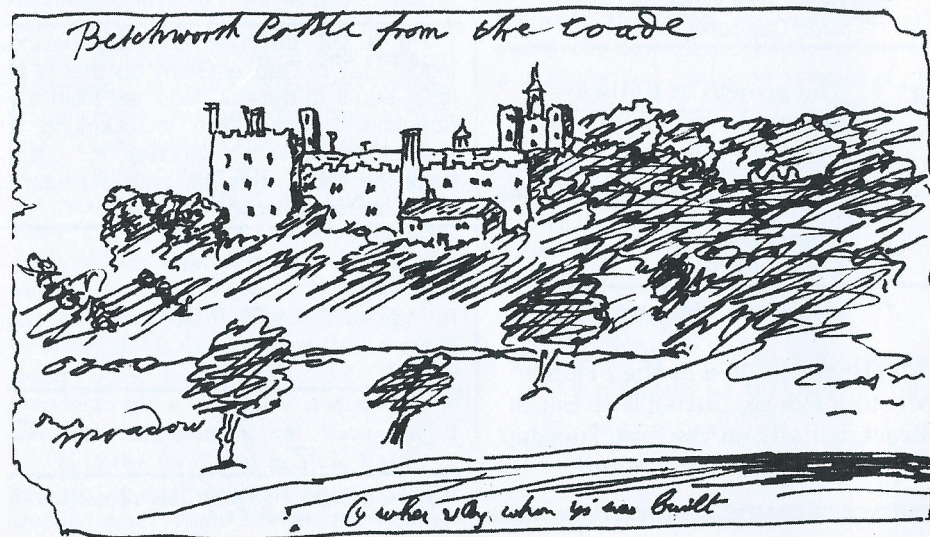 Betchworth Castle from the roade
meadow
Q when & by whom ys was built